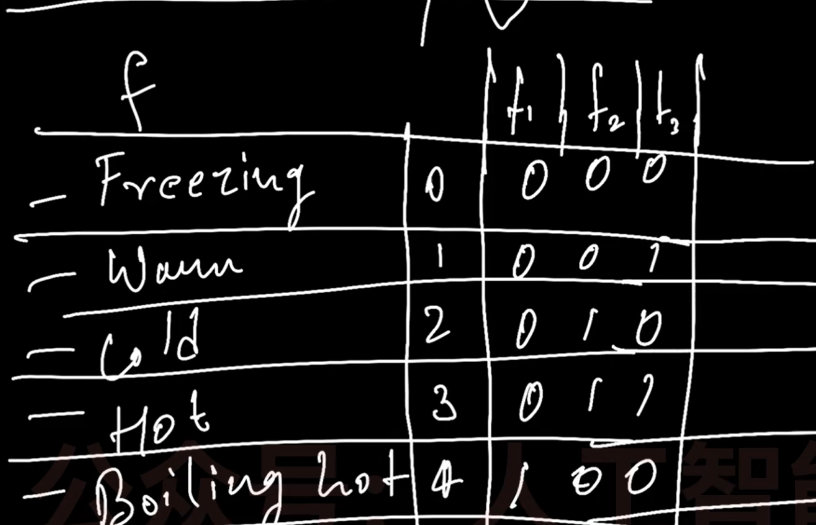 f f₁ f₂ f₃
Freezing 0 0 0 0
Warm 1 0 0 1
Cold 2 0 1 0
Hot 3 0 1 1
Boiling hot 4 1 0 0
公众号：人工智能